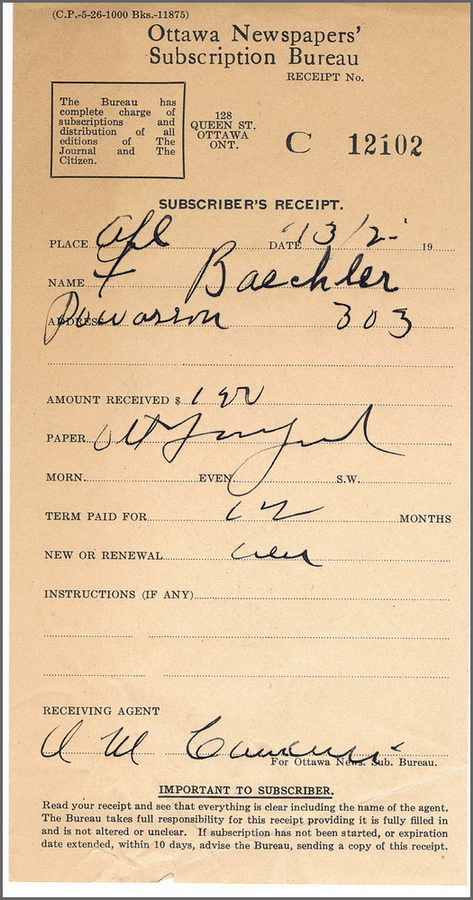 (C.P.-5-26-1000 Bks.-11875)
Ottawa Newspapers'
Subscription Bureau
RECEIPT No.
The Bureau has
complete charge of
subscriptions and
distribution of all
editions of The
Journal and The
Citizen.
128
QUEEN ST.
OTTAWA
ONT.
C 12102
SUBSCRIBER'S RECEIPT.
PLACE DATE 13/2 19
NAME Baechler
ADDRESS 303
AMOUNT RECEIVED $
PAPER
MORN. EVEN. S.W.
TERM PAID FOR 12 MONTHS
NEW OR RENEWAL new
INSTRUCTIONS (IF ANY)
RECEIVING AGENT
For Ottawa News. Sub. Bureau.
IMPORTANT TO SUBSCRIBER.
Read your receipt and see that everything is clear including the name of the agent.
The Bureau takes full responsibility for this receipt providing it is fully filled in
and is not altered or unclear. If subscription has not been started, or expiration
date extended, within 10 days, advise the Bureau, sending a copy of this receipt.